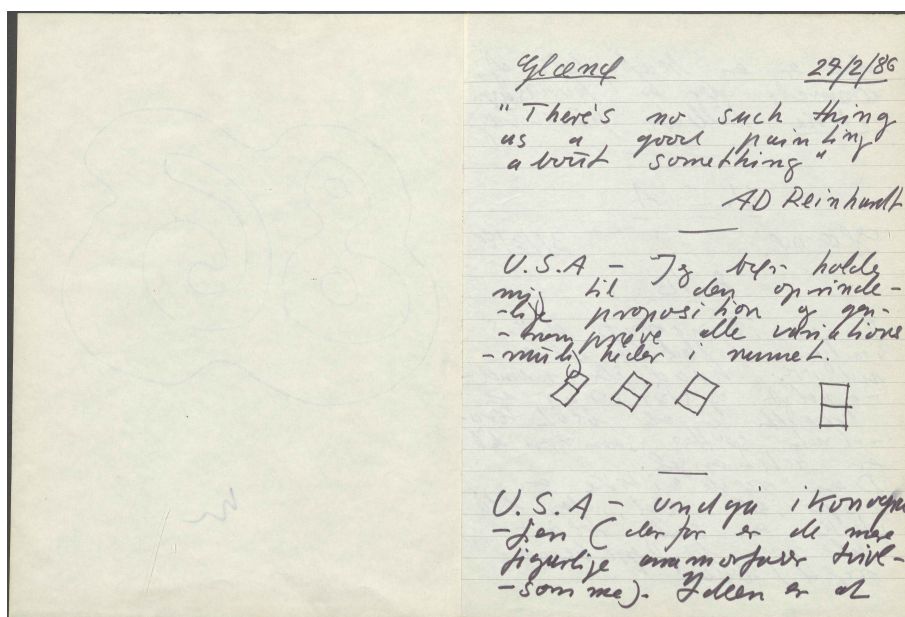 Gland 24/2/86
"There's no such thing
as a good painting
about something"
AD Reinhardt
U.S.A – Jeg bør holde
mig til den oprinde-
-lige proposition og gen-
-nemprøve alle variations
-muligheder i rummet.
U.S.A – undgå ikonogra
-fien (derfor er de mere
figurlige anamorfoser tvivl-
-somme). Ideen er at